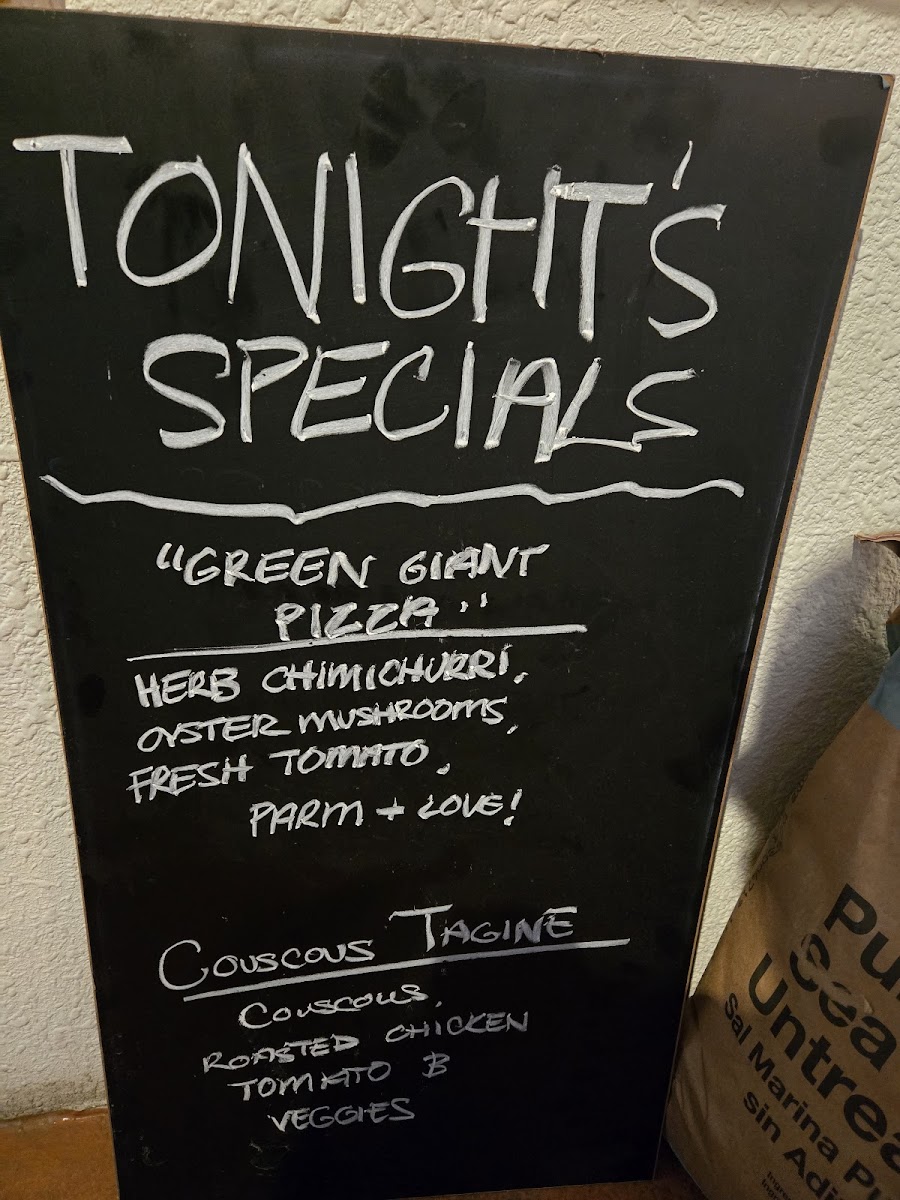 TONIGHT'S
SPECIALS
"GREEN GIANT
PIZZA"
HERB CHIMICHURRI,
OYSTER MUSHROOMS,
FRESH TOMATO,
PARM + LOVE!
COUSCOUS TAGINE
COUSCOUS,
ROASTED CHICKEN
TOMATO &
VEGGIES
Sal Marina
sin